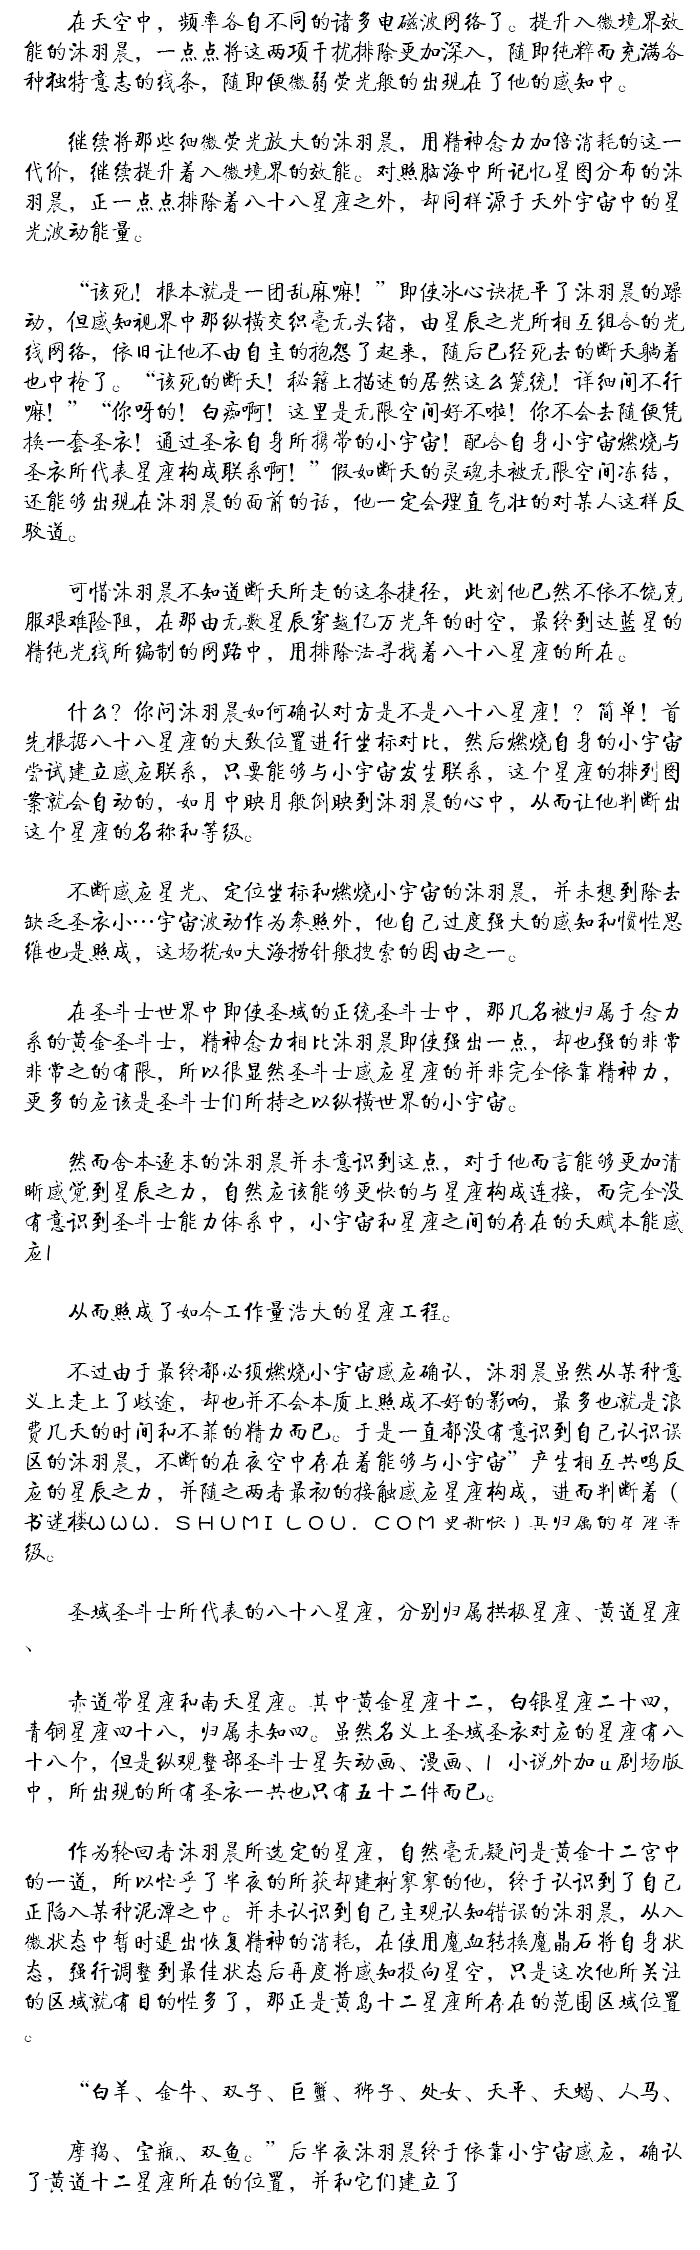 在天空中，频率各自不同的诸多电磁波网络了。提升入微境界效
能的沐羽晨，一点点将这两项干扰排除更加深入，随即纯粹而充满各
种独特意志的线条，随即便微弱荧光般的出现在了他的感知中。
继续将那些细微荧光放大的沐羽晨，用精神念力加倍消耗的这一
代价，继续提升着入微境界的效能。对照脑海中所记忆星图分布的沐
羽晨，正一点点排除着八十八星座之外，却同样源于天外宇宙中的星
光波动能量。
“该死！根本就是一团乱麻嘛！”即使冰心诀抚平了沐羽晨的躁
动，但感知视界中那纵横交织毫无头绪，由星辰之光所相互组合的光
线网络，依旧让他不由自主的抱怨了起来，随后已经死去的断天躺着
也中枪了。“该死的断天！秘籍上描述的居然这么笼统！详细间不行
嘛！”“你呀的！白痴啊！这里是无限空间好不啦！你不会去随便凭
换一套圣衣！通过圣衣自身所携带的小宇宙！配合自身小宇宙燃烧与
圣衣所代表星座构成联系啊！”假如断天的灵魂未被无限空间冻结，
还能够出现在沐羽晨的面前的话，他一定会理直气壮的对某人这样反
驳道。
可惜沐羽晨不知道断天所走的这条捷径，此刻他已然不依不饶克
服艰难险阻，在那由无数星辰穿越亿万光年的时空，最终到达蓝星的
精纯光线所编制的网路中，用排除法寻找着八十八星座的所在。
什么？你问沐羽晨如何确认对方是不是八十八星座！？简单！首
先根据八十八星座的大致位置进行坐标对比，然后燃烧自身的小宇宙
尝试建立感应联系，只要能够与小宇宙发生联系，这个星座的排列图
案就会自动的，如月中映月般倒映到沐羽晨的心中，从而让他判断出
这个星座的名称和等级。
不断感应星光、定位坐标和燃烧小宇宙的沐羽晨，并未想到除去
缺乏圣衣小…宇宙波动作为参照外，他自己过度强大的感知和惯性思
维也是照成，这场犹如大海捞针般搜索的因由之一。
在圣斗士世界中即使圣域的正统圣斗士中，那几名被归属于念力
系的黄金圣斗士，精神念力相比沐羽晨即使强出一点，却也强的非常
非常之的有限，所以很显然圣斗士感应星座的并非完全依靠精神力，
更多的应该是圣斗士们所持之以纵横世界的小宇宙。
然而舍本逐末的沐羽晨并未意识到这点，对于他而言能够更加清
晰感觉到星辰之力，自然应该能够更快的与星座构成连接，而完全没
有意识到圣斗士能力体系中，小宇宙和星座之间的存在的天赋本能感
应l
从而照成了如今工作量浩大的星座工程。
不过由于最终都必须燃烧小宇宙感应确认，沐羽晨虽然从某种意
义上走上了歧途，却也并不会本质上照成不好的影响，最多也就是浪
费几天的时间和不菲的精力而已。于是一直都没有意识到自己认识误
区的沐羽晨，不断的在夜空中存在着能够与小宇宙”产生相互共鸣反
应的星辰之力，并随之两者最初的接触感应星座构成，进而判断着（
书迷楼ＷＷＷ．ＳＨＵＭＩＬＯＵ．ＣＯＭ更新快）其归属的星座等
级。
圣域圣斗士所代表的八十八星座，分别归属拱极星座、黄道星座
、
赤道带星座和南天星座。其中黄金星座十二，白银星座二十四，
青铜星座四十八，归属未知四。虽然名义上圣域圣衣对应的星座有八
十八个，但是纵观整部圣斗士星矢动画、漫画、l 小说外加u剧场版
中，所出现的所有圣衣一共也只有五十二件而已。
作为轮回者沐羽晨所选定的星座，自然毫无疑问是黄金十二宫中
的一道，所以忙乎了半夜的所获却建树寥寥的他，终于认识到了自己
正陷入某种泥潭之中。并未认识到自己主观认知错误的沐羽晨，从入
微状态中暂时退出恢复精神的消耗，在使用魔血转换魔晶石将自身状
态，强行调整到最佳状态后再度将感知投向星空，只是这次他所关注
的区域就有目的性多了，那正是黄岛十二星座所存在的范围区域位置
。
“白羊、金牛、双子、巨蟹、狮子、处女、天平、天蝎、人马、
摩羯、宝瓶、双鱼。”后半夜沐羽晨终于依靠小宇宙感应，确认
了黄道十二星座所在的位置，并和它们建立了